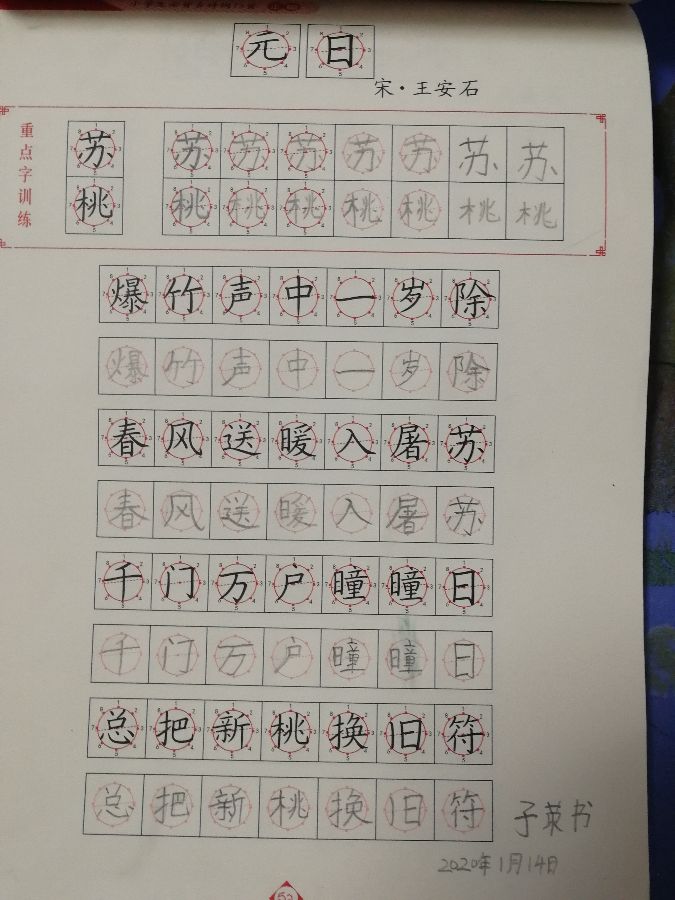 元日
宋·王安石
重点字训练
苏 苏苏苏苏苏苏苏
桃 桃桃桃桃桃桃桃
爆竹声中一岁除
爆竹声中一岁除
春风送暖入屠苏
春风送暖入屠苏
千门万户瞳瞳日
千门万户瞳瞳日
总把新桃换旧符
总把新桃换旧符
子莱书
2020年1月14日
52